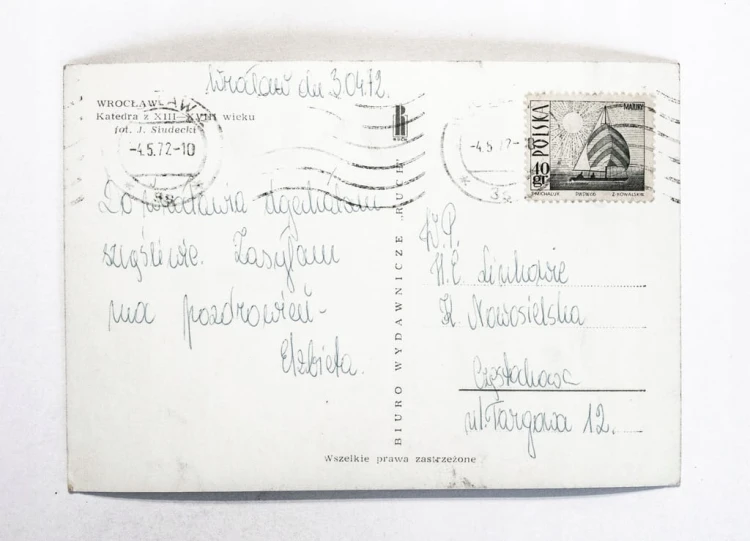 Wrocław dn 3.04.72.
WROCŁAW
Katedra z XIII—XVIII wieku
fot. J. Siudecki
WROCŁAW
-4.5.72-10
Do Wrocławia dojechałam
szczęśliwie. Zasyłam
moc pozdrowień-
Elżbieta.
BIURO WYDAWNICZE „RUCH"
-4.5.72-
POLSKA
MAZURY
10 gr
W.P.
K. Nowosielska
Częstochowa
ul. Targowa 12.
Wszelkie prawa zastrzeżone